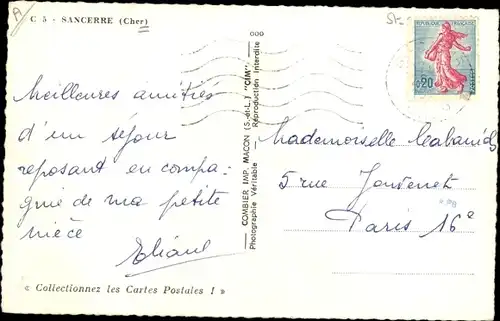 C 5 - SANCERRE (Cher)
Meilleures amitiés
d'un séjour
reposant en compa-
gnie de ma petite
nièce
Eliane
« Collectionnez les Cartes Postales ! »
COMBIER IMP. MACON (S.-et-L.) "CIM"
Photographie Véritable - Reproduction Interdite
REPUBLIQUE FRANÇAISE
0,20
POSTES
Mademoiselle
5 rue
Paris 16e